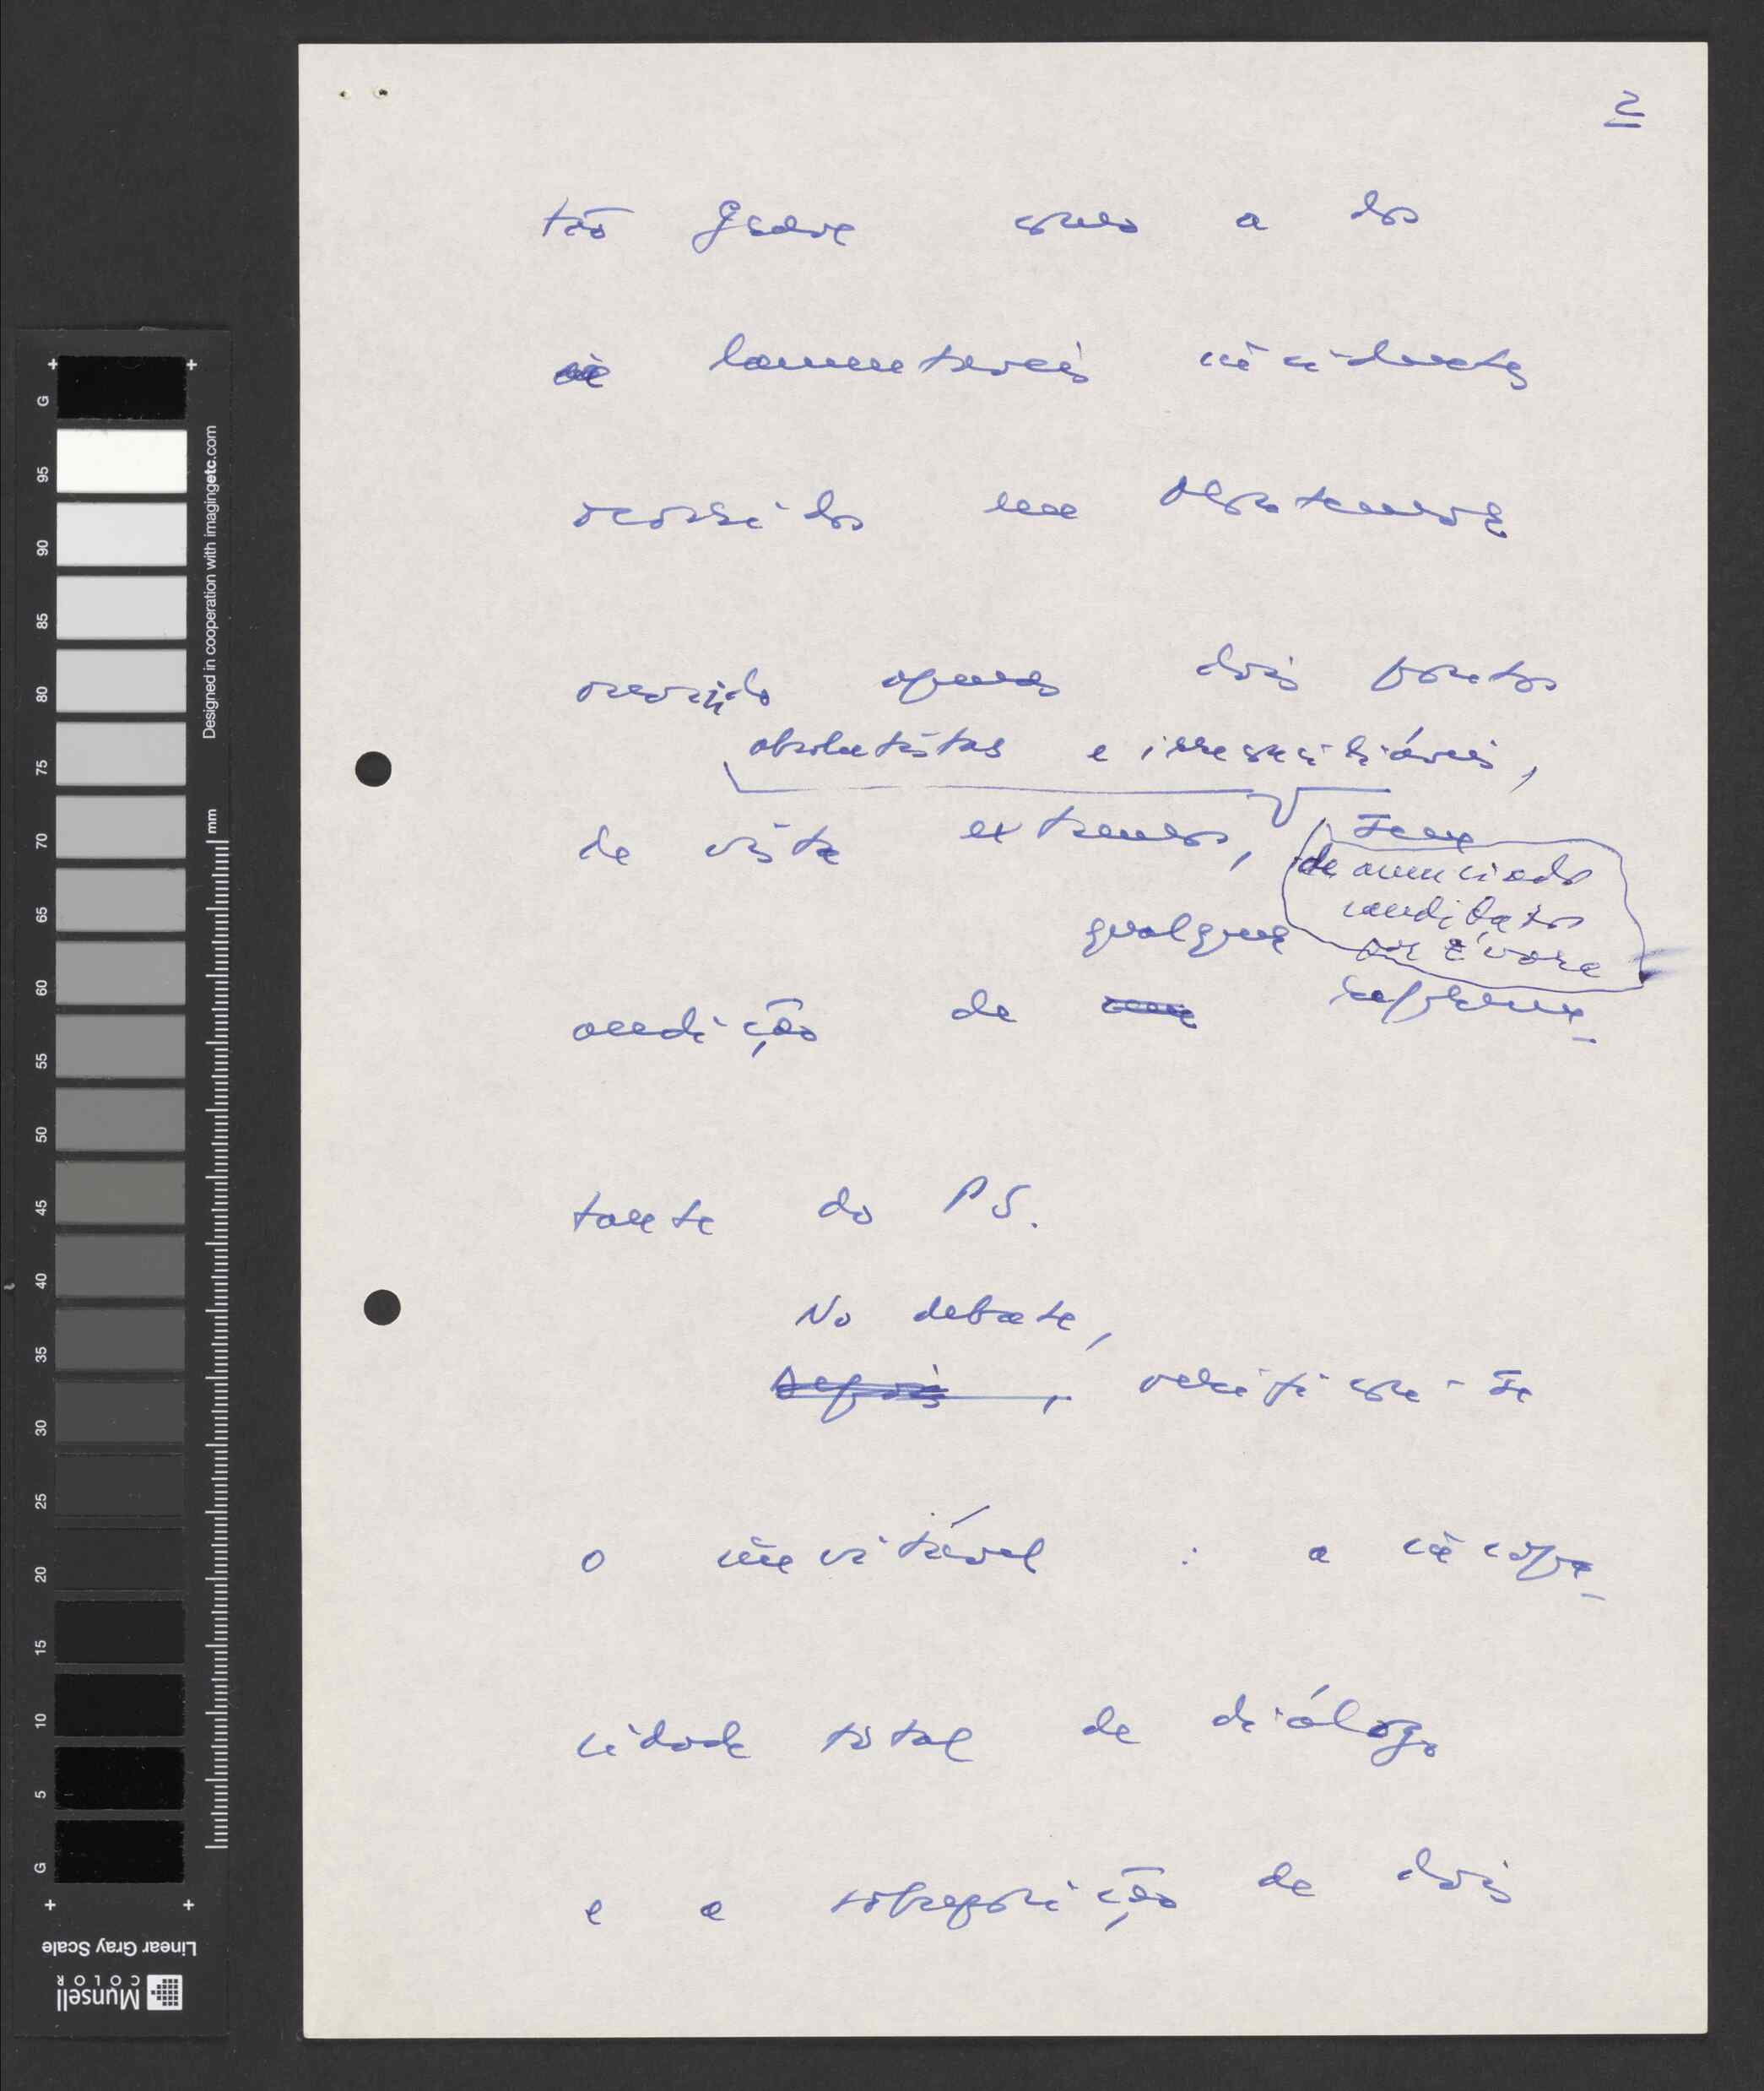 2
tão grave como a dos
lamentáveis incidentes
ocorridos em Montemor,
ouvindo apenas dois pontos
absolutistas e irreconciliáveis,
de vista extremos, sem
de anunciado
candidato
por Évora
qualquer
audição de represen-
tante do PS.
No debate,
Depois, verificou-se
o inevitável : a incapa-
cidade total de diálogo
e a sobreposição de dois
G 95 90 85 80 75 70 65 60 55 50 45 40 35 30 25 20 15 10 5 G
mm
Designed in cooperation with imagingetc.com
Linear Gray Scale
Munsell
COLOR